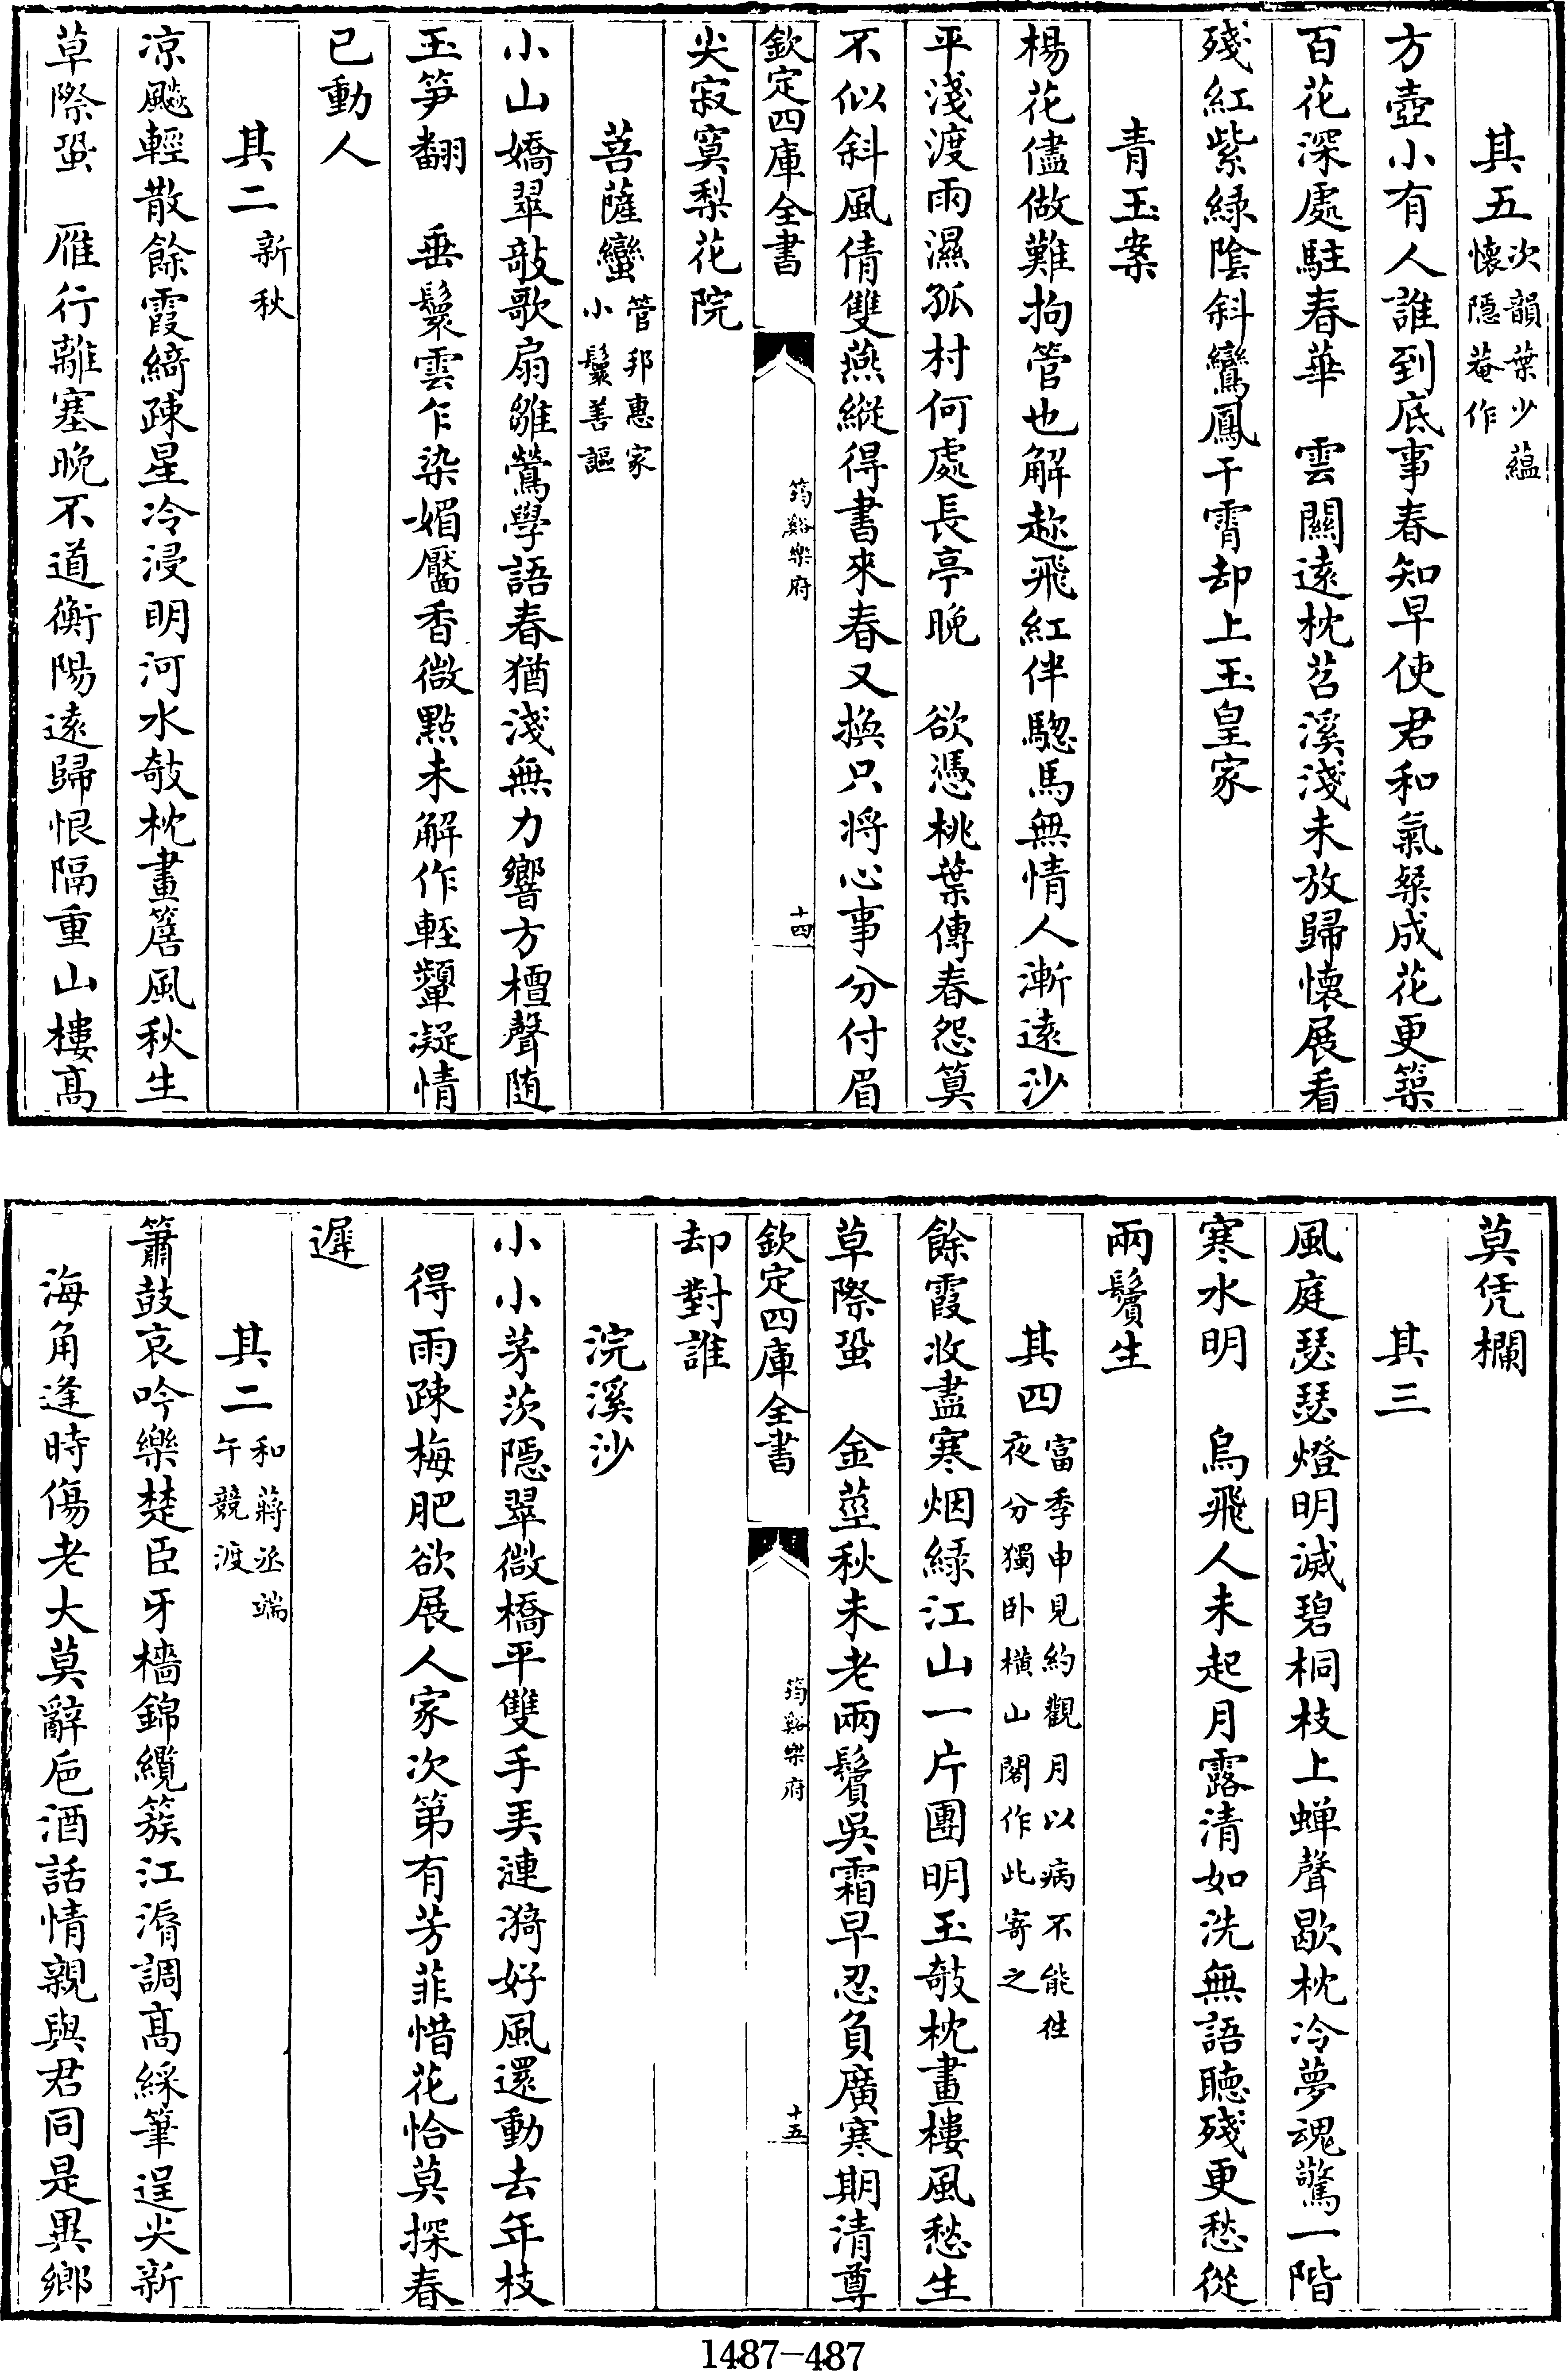 其五次韻葉少蘊懐隠菴作
方壺小有人誰到底事春知早使君和氣槩成花更築
百花深處駐春華　雲關逺枕苕溪淺未放歸懐展看
殘紅紫緑隂斜鸞鳳干霄却上玉皇家
青玉案
楊花儘做難拘管也解趂飛紅伴騘馬無情人漸逺沙
平淺渡雨濕孤村何處長亭晚　欲憑桃葉傳春怨算
不似斜風倩雙燕縱得書來春又換只將心事分付眉
欽定四庫全書　筠谿樂府　十四
尖寂寞梨花院
菩薩蠻管邦惠家小鬟善謳
小山嬌翠敧歌扇雛鶯學語春猶淺無力響方檀聲随
玉笋翻　垂鬟雲乍染媚靨香微點未解作輊顰凝情
已動人
其二新秋
凉飈輕散餘霞綺疎星冷浸明河水敧枕畫簷風秋生
草際蛩　雁行離塞晚不道衡陽逺歸恨隔重山樓髙
莫凭欄
其三
風庭瑟瑟燈明滅碧桐枝上蝉聲歇枕冷夢魂驚一階
寒水明　鳥飛人未起月露清如洗無語聴殘更愁從
兩鬢生
其四富季申見約觀月以病不能徃夜分獨卧横山閣作此寄之
餘霞收盡寒烟緑江山一片團明玉敧枕畫樓風愁生
草際蛩　金莖秋未老兩鬢吳霜早忍負廣寒期清尊
欽定四庫全書　筠谿樂府　十五
却對誰
浣溪沙
小小茅茨隠翠微橋平雙手美漣漪好風還動去年枝
得雨疎梅肥欲展人家次第有芳菲惜花恰莫探春
遲
其二和蔣丞端午競渡
簫鼓哀吟樂楚臣牙檣錦纜簇江濆調髙綵筆逞尖新
海角逢時傷老大莫辭巵酒話情親與君同是異鄉
1487-487